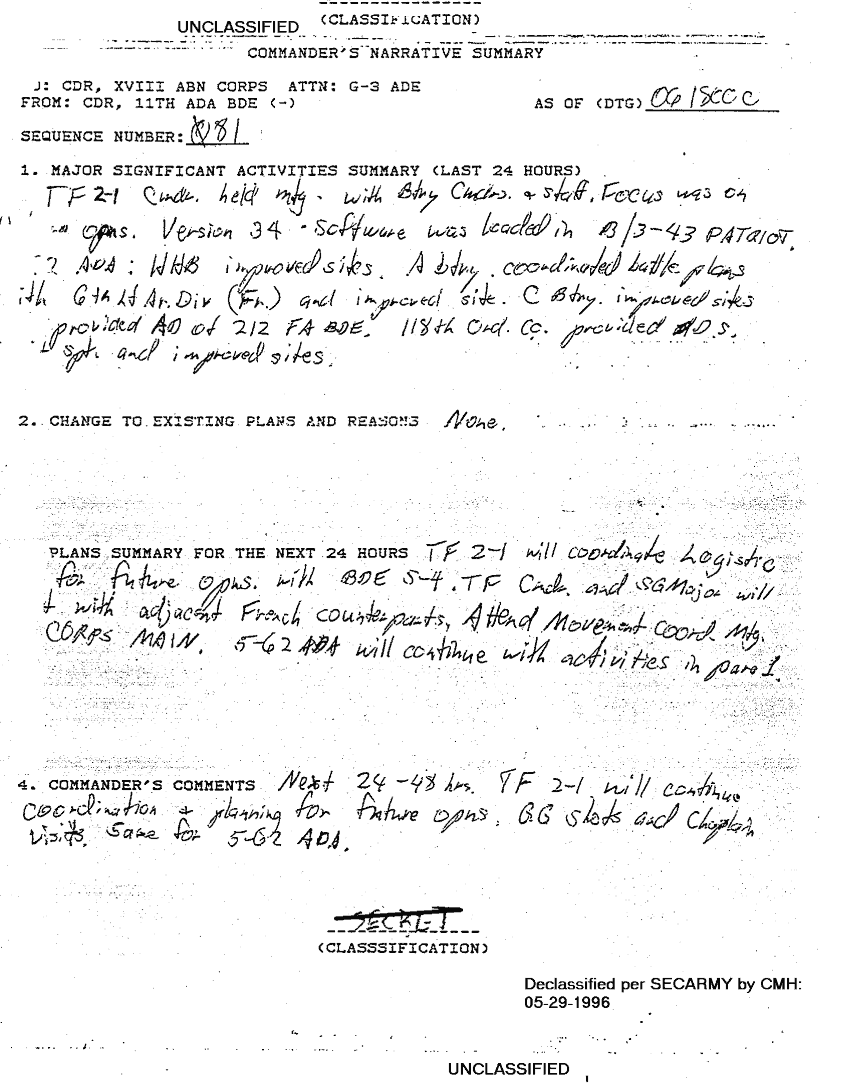 (CLASSIFICATION)
UNCLASSIFIED
COMMANDER'S NARRATIVE SUMMARY
J: CDR, XVIII ABN CORPS ATTN: G-3 ADE
FROM: CDR, 11TH ADA BDE (-)
AS OF (DTG) 061800C
SEQUENCE NUMBER: 081
1. MAJOR SIGNIFICANT ACTIVITIES SUMMARY (LAST 24 HOURS)
TF 2-1 Cmdr. held mtg. with Btry Cmdrs. & staff. Focus was on
opns. Version 34 Software was loaded in B/3-43 PATRIOT.
2 ADA: HHB improved sites. A btry. coordinated battle plans
ith 6th Lt Ar. Div (Fr.) and improved site. C Btry. improved sites
provided AD of 212 FA BDE. 118th Ord. Co. provided D.S.
spt. and improved sites.
2. CHANGE TO EXISTING PLANS AND REASONS None.
PLANS SUMMARY FOR THE NEXT 24 HOURS TF 2-1 will coordinate Logistic
for future opns. with BDE S-4. TF Cmdr. and SGMajor will
t with adjacent French counterparts, Attend Movement Coord. Mtg.
CORPS MAIN. 5-62 ADA will continue with activities in para 1.
4. COMMANDER'S COMMENTS Next 24-48 hrs. TF 2-1 will continue
coordination & planning for future opns. GG shots and Chaplain
visits. Same for 5-62 ADA.
SECRET
(CLASSSIFICATION)
Declassified per SECARMY by CMH:
05-29-1996
UNCLASSIFIED